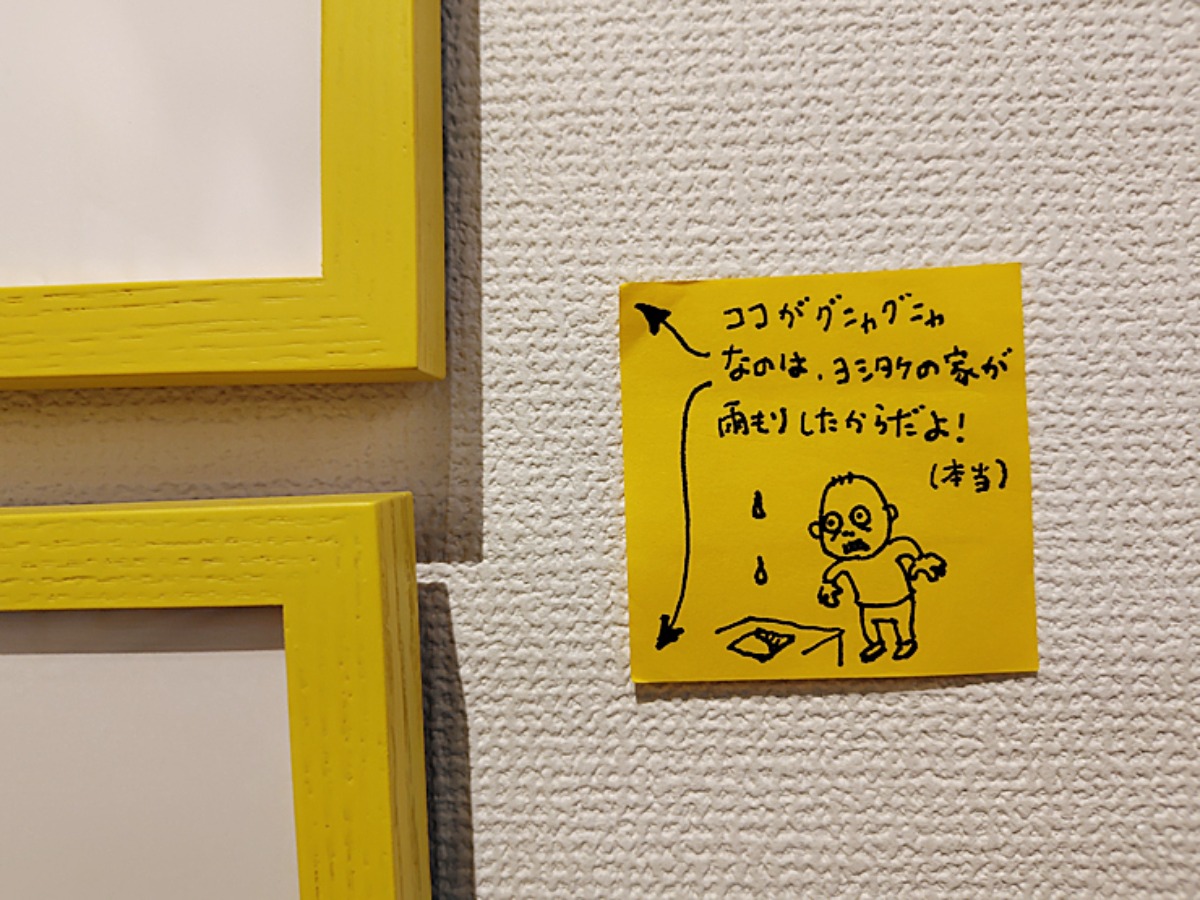 ココがグニャグニャ
なのは、ヨシタケの家が
雨もりしたからだよ!
(本当)